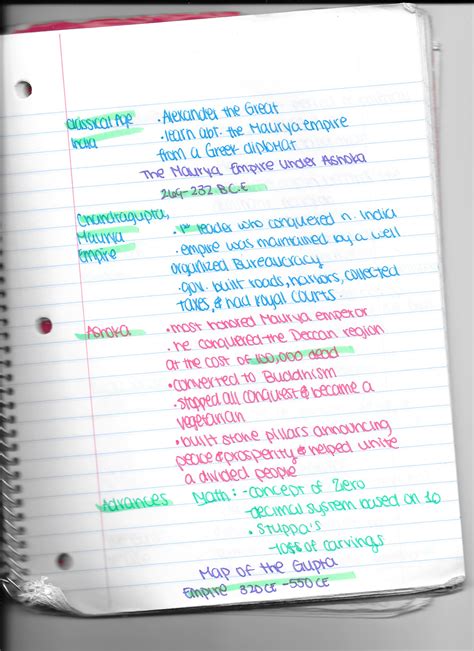 Classical Age · Alexander the Great
India · learn abt. the Maurya empire
from a Greek diplomat
The Maurya Empire under Ashoka
269-232 B.C.E
Chandragupta, · 1st leader who conquered n. India
Maurya · empire was maintained by a well
Empire organized Bureaucracy
· gov. built roads, harriors, collected
taxes, & had royal courts.
Ashoka · most honored Maurya emperor
· he conquered the Deccan region
at the cost of 100,000 dead
· converted to Buddhism
· stopped all conquest & became a
vegetarian
· built stone pillars announcing
peace & prosperity & helped unite
a divided people
Advances Math: - concept of Zero
- decimal system based on 10
· Stuppa's
- lots of carvings
Map of the Gupta
Empire 320 CE - 550 CE